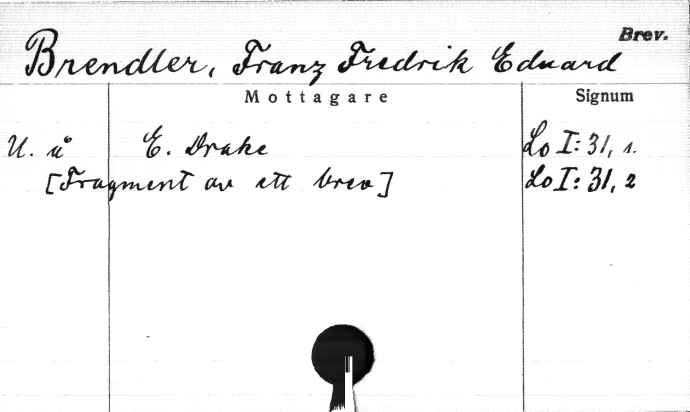 Brev.
Brendler, Franz Fredrik Eduard
Mottagare Signum
U. å E. Drake Lo I: 31, 1.
[Fragment av ett brev] Lo I: 31, 2